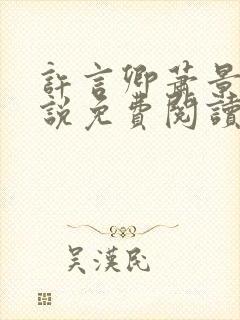 許言卿蕭景
說免費閱讀
吳漢民